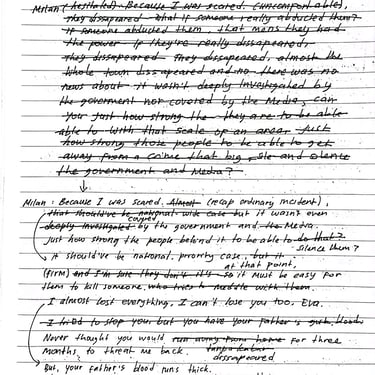 Milan (hesitated) - Because I was scared. (uncomfortable),
they dissapeared - What if someone really abducted them?
If someone abducted them, that means they had
the power if they're really dissapeared,
they dissapeared. They dissapeared, almost the
whole town dissapeared and no there was no
news about it wasn't deeply investigated by
the goverment nor covered by the Media, can
you just how strong the they are to be able
able to with that scale of an area. Just
how strong those people to be able to get
away from a crime that big, and silence
the government and Media?
Milan: Because I was scared. Almost (recap ordinary incident),
that should've be national wide case but it wasn't even
deeply investigated by the government and the Media.
covered
just how strong the people behind it to be able to do that?
silence them?
it should've be national, priority case, but it
at that point,
(firm) and I'm sure they don't it's so it must be easy for
them to kill someone who tries to meddle with them.
I almost lost everything, I can't lose you too, Eva.
I tried to stop you, but you have your father's blood.
Never thought you would run away from home for three
months, to threat me back. tanpa kabar
dissapeared
But, your father's blood runs thick.